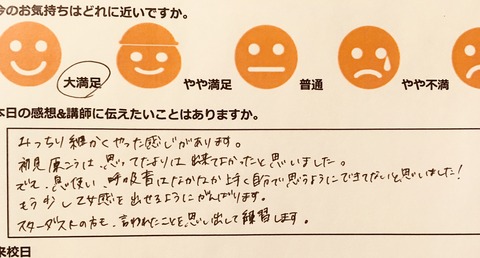 今のお気持ちはどれに近いですか。
大満足 やや満足 普通 やや不満
本日の感想&講師に伝えたいことはありますか。
みっちり細かくやった感じがあります。
初見 は、思ってたよりは出来てよかったと思いました。
でも、息使い、呼吸音はなかなか上手く自分で思うようにできてないと思いました!
もう少し 感を出せるようにがんばります。
スターダストの方も、言われたことを思い出して練習します。
来校日